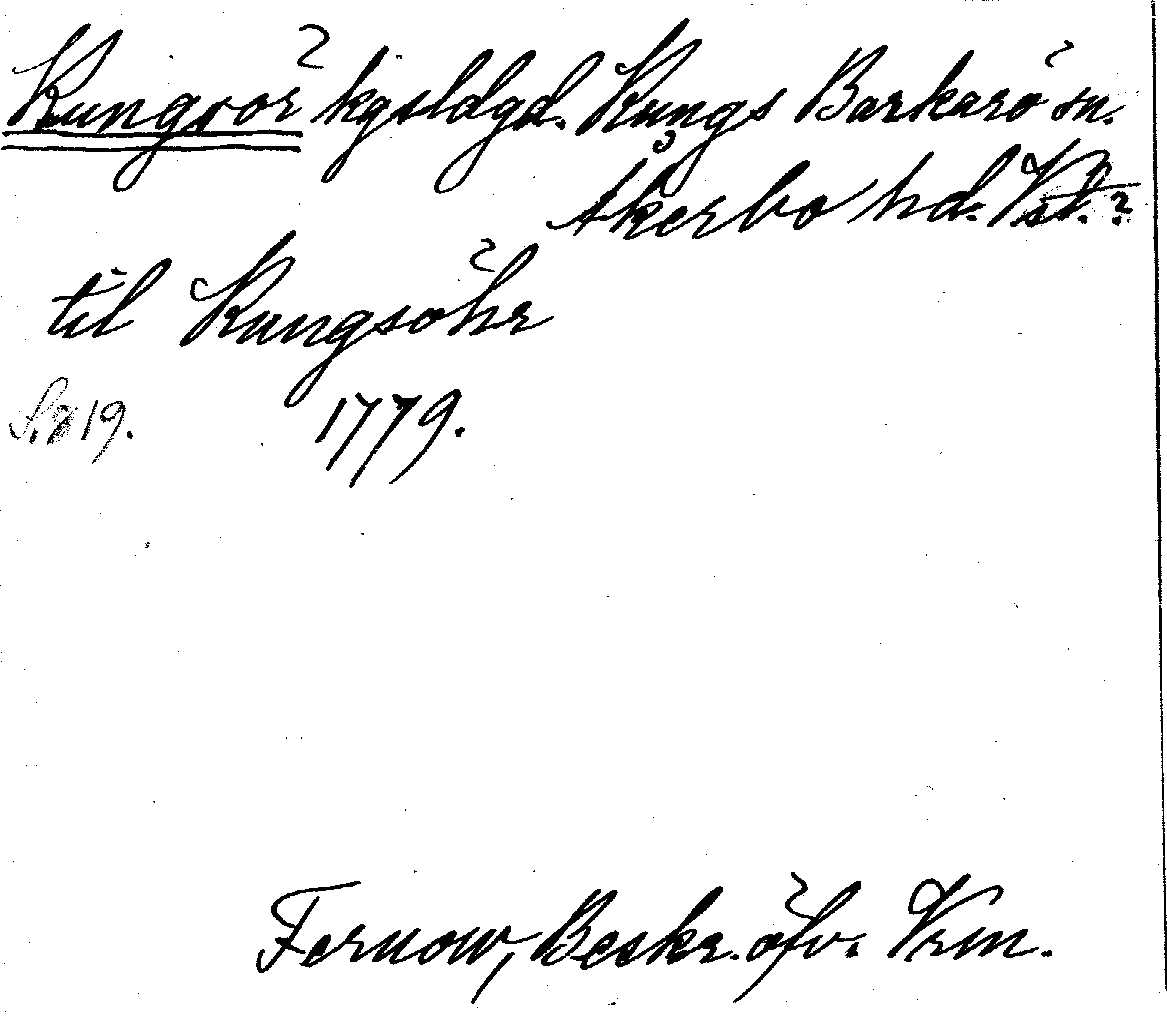 Kungsör kgsldgd. Kungs Barkarö sn.
Åkerbo hd. Vstm.?
til Kungsöhr
S. 219. 1779.
Fernow, Beskr. öfv. Vrm.